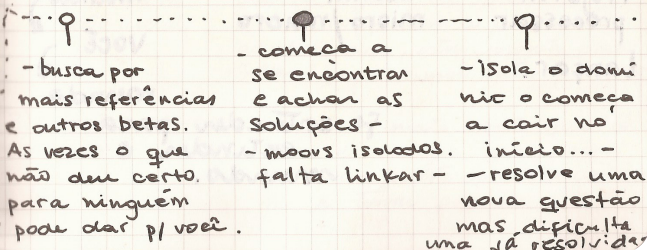 -busca por
mais referências
e outros betas.
As vezes o que
não deu certo.
para ninguém
pode dar p/ você.
- começa a
se encontrar
e achar as
soluções -
- moovs isolados.
falta linkar -
-isola o domí
nio o começa
a cair no
início...-
-resolve uma
nova questão
mas dificulta
uma já resolvida